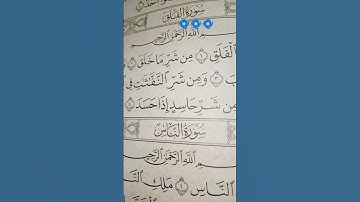 سُورَةُ الْفَلَقِ
مِ اللَّهِ الرَّحْمَٰنِ الرَّحِيمِ
الْفَلَقِ ١ مِن شَرِّ مَا خَلَقَ ٢
٣ وَمِن شَرِّ النَّفَّاثَاتِ فِي
مِن شَرِّ حَاسِدٍ إِذَا حَسَدَ ٥
سُورَةُ النَّاسِ
مِ اللَّهِ الرَّحْمَٰنِ الرَّحِيمِ
النَّاسِ ١ مَلِكِ